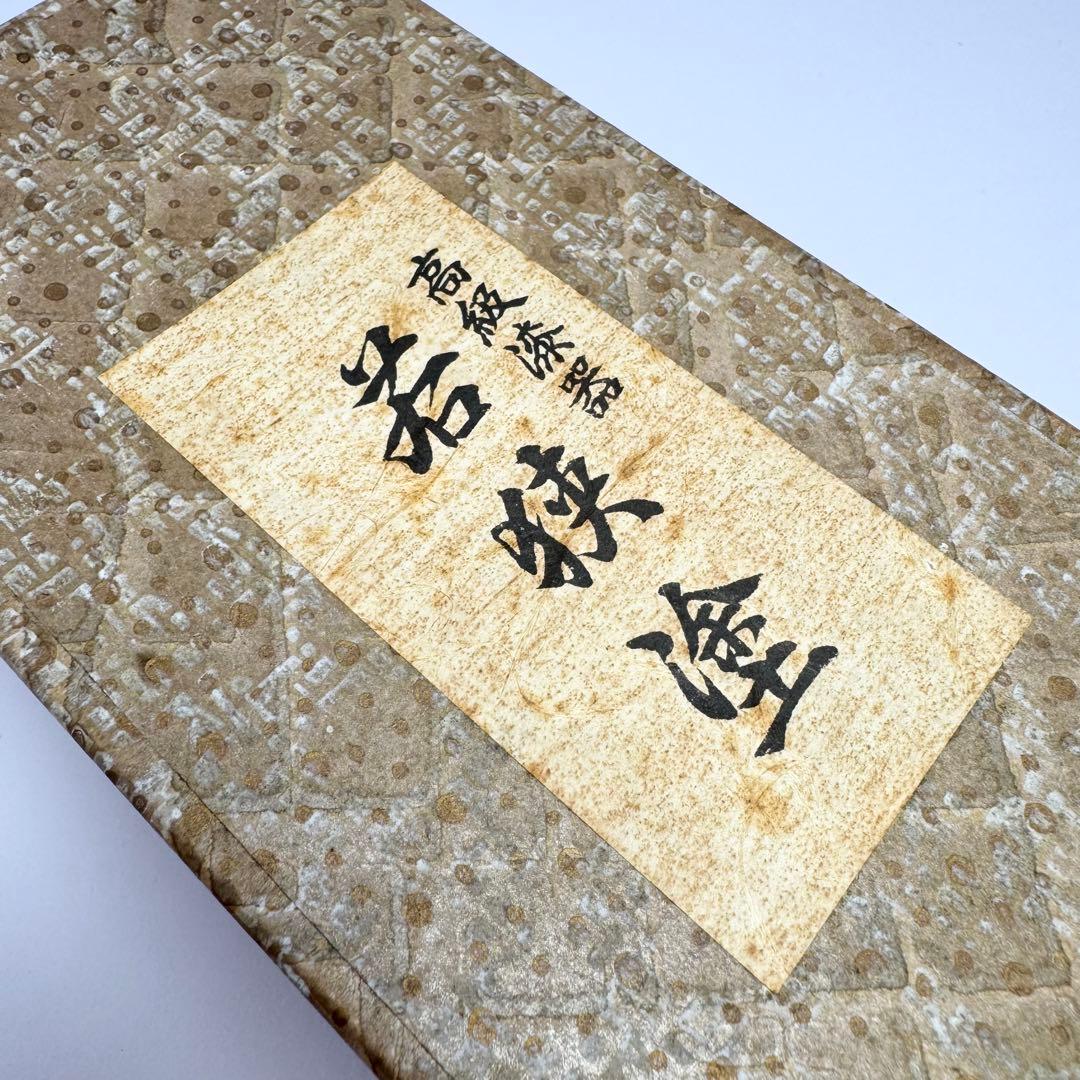 高級漆器
若狭塗